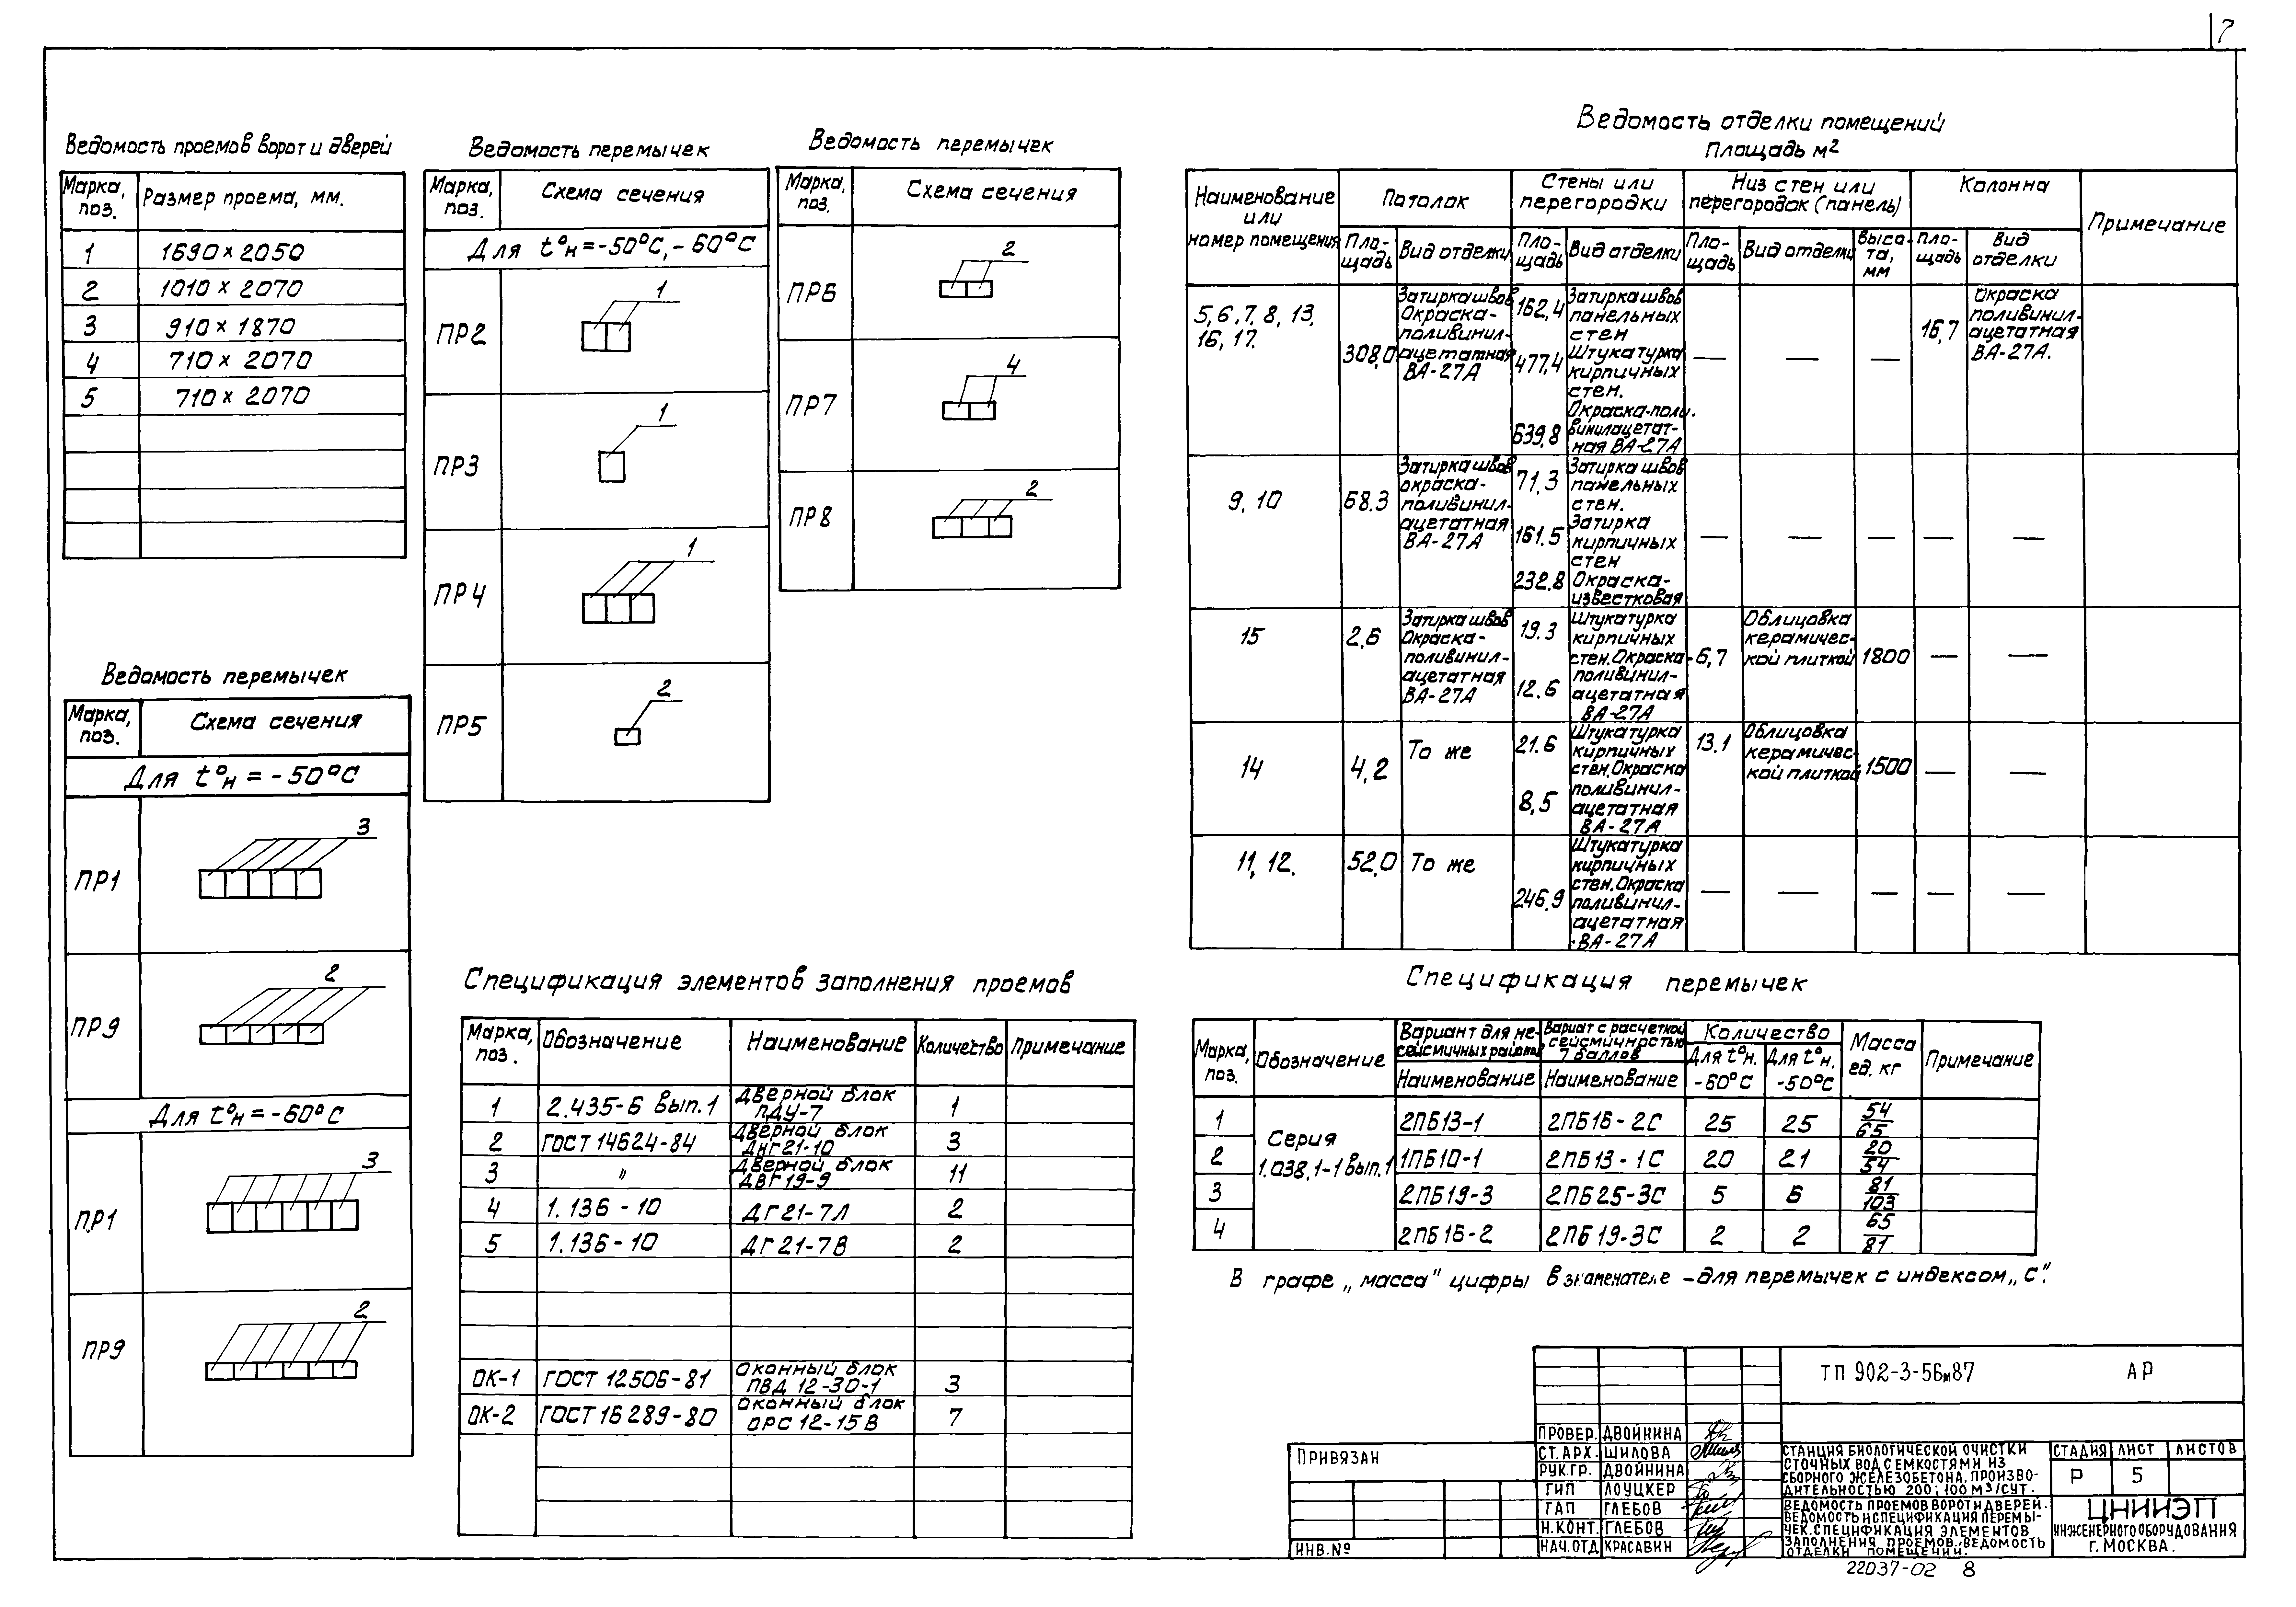 7
Ведомость проемов ворот и дверей
Марка, поз. Размер проема, мм.
1 1690×2050
2 1010×2070
3 910×1870
4 710×2070
5 710×2070
Ведомость перемычек
Марка, поз. Схема сечения
Для t°н=-50°С,-60°С
ПР2 1
ПР3 1
ПР4 1
ПР5 2
Ведомость перемычек
Марка, поз. Схема сечения
ПР6 2
ПР7 4
ПР8 2
Ведомость перемычек
Марка, поз. Схема сечения
Для t°н=-50°С
ПР1 3
ПР9 2
Для t°н=-60°С
ПР1 3
ПР9 2
Ведомость отделки помещений
Площадь м²
Наименование или номер помещения
Патолок
Стены или перегородки
Низ стен или перегородок (панель)
Колонна
Примечание
Площадь Вид отделки Площадь Вид отделки Площадь Вид отделки Высота, мм Площадь Вид отделки
5,6,7,8,13,
16,17.
308,0
Затирка швов
Окраска-
поливинил-
ацетатная
ВА-27А
162,4
Затирка швов
панельных
стен
477,4
Штукатурка
кирпичных
стен.
639,8
Окраска-поли-
винилацетат-
ная ВА-27А
— — —
16,7
Окраска
поливинил-
ацетатная
ВА-27А.
9,10
68.3
Затирка швов
окраска-
поливинил-
ацетатная
ВА-27А
71.3
Затирка швов
панельных
стен.
161.5
Затирка
кирпичных
стен
232.8
Окраска-
известковая
— — — — —
15
2,6
Затирка швов
Окраска-
поливинил-
ацетатная
ВА-27А
19.3
12.6
Штукатурка
кирпичных
стен. Окраска-
поливинил-
ацетатная
ВА-27А
6,7
Облицовка
керамичес-
кой плиткой
1800 — —
14
4,2
То же
21.6
8,5
Штукатурка
кирпичных
стен. Окраска
поливинил-
ацетатная
ВА-27А
13.1
Облицовка
керамичес-
кой плиткой
1500 — —
11,12.
52,0
То же
246,9
Штукатурка
кирпичных
стен. Окраска
поливинил-
ацетатная
ВА-27А
— — — — —
Спецификация элементов заполнения проемов
Марка, поз. Обозначение Наименование Количество Примечание
1 2.435-6 вып.1 Дверной блок ПДУ-7 1
2 ГОСТ 14624-84 Дверной блок ДНГ21-10 3
3 " Дверной блок ДВГ19-9 11
4 1.136-10 ДГ21-7Л 2
5 1.136-10 ДГ21-7В 2
ОК-1 ГОСТ 12506-81 Оконный блок ПВД 12-30-1 3
ОК-2 ГОСТ 16289-80 Оконный блок ОРС 12-15В 7
Спецификация перемычек
Марка, поз.
Обозначение
Вариант для несейсмичных районов
Вариат с расчетной сейсмичностью 7 баллов
Количество
Масса ед. кг
Примечание
Наименование Наименование Для t°н. -60°С Для t°н. -50°С
Серия
1.038.1-1 вып.1
1 2ПБ13-1 2ПБ16-2С 25 25 54/65
2 1ПБ10-1 2ПБ13-1С 20 21 20/54
3 2ПБ19-3 2ПБ25-3С 5 6 81/103
4 2ПБ16-2 2ПБ19-3С 2 2 65/81
В графе „масса" цифры в знаменателе – для перемычек с индексом „С".
ТП 902-3-56м87 АР
Привязан
ИНВ.№
ПРОВЕР. ДВОЙНИНА
СТ.АРХ. ШИЛОВА
РУК.ГР. ДВОЙНИНА
ГИП ЛОУЦКЕР
ГАП ГЛЕБОВ
Н.КОНТ. ГЛЕБОВ
НАЧ.ОТД КРАСАВИН
СТАНЦИЯ БИОЛОГИЧЕСКОЙ ОЧИСТКИ
СТОЧНЫХ ВОД С ЕМКОСТЯМИ ИЗ
СБОРНОГО ЖЕЛЕЗОБЕТОНА, ПРОИЗВО-
ДИТЕЛЬНОСТЬЮ 200; 100 М³/СУТ.
СТАДИЯ ЛИСТ ЛИСТОВ
Р 5
ВЕДОМОСТЬ ПРОЕМОВ ВОРОТ И ДВЕРЕЙ.
ВЕДОМОСТЬ И СПЕЦИФИКАЦИЯ ПЕРЕМЫ-
ЧЕК. СПЕЦИФИКАЦИЯ ЭЛЕМЕНТОВ
ЗАПОЛНЕНИЯ ПРОЕМОВ. ВЕДОМОСТЬ
ОТДЕЛКИ ПОМЕЩЕНИЙ.
ЦНИИЭП
ИНЖЕНЕРНОГО ОБОРУДОВАНИЯ
Г. МОСКВА.
22037-02 8